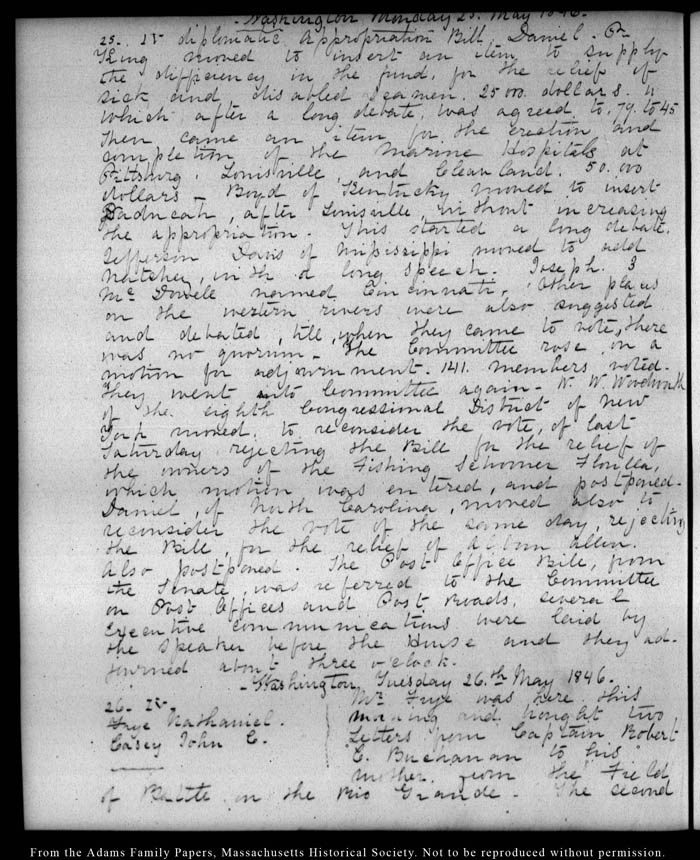 Washington Monday 25. May 1846.
25. IV diplomatic Appropriation Bill. Daniel P.
King moved to insert an item to supply
the difficiency in the fund, for the relief of
sick and disabled Seamen. 25 000. dollars.
which after a long debate, was agreed to. 79. to 45
Then came an item for the erection and
completion of the Marine Hospitals at
Pittsburg, Louisville, and Cleaveland. 50.000
dollars - Boyd of Kentucky moved to insert
Paducah, after Louisville, without increasing
the appropriation. This started a long debate.
Jefferson Davis of Mississippi moved to add
Natchez, with a long speech. Joseph J
McDowell named Cincinnati, Other places
on the western rivers were also suggested
and debated, till, when they came to vote, there
was no quorum - The Committee rose, on a
motion for adjournment. 141. members voted.
They went into Committee again - W. W. Woodworth
of the eighth Congressional District of New
York moved, to reconsider the vote, of last
Saturday, rejecting the Bill, for the relief of
the owners of the Fishing Schooner Florilla,
which motion was entered, and postponed.
Daniel, of North Carolina, moved also to
reconsider the vote of the same day, rejecting
the Bill, for the relief of Allen.
Also postponed. The Post Office Bill, from
the Senate, was referred to the Committee
on Post Offices and Post Roads. Several
Executive communications were laid by
the Speaker before the House and they ad-
journed about three o'clock.
-Washington, Tuesday 26.th May 1846.
26. IV.
Frye Nathaniel.
Casey John C.
Mr Frye was here this
morning and brought two
Letters from Captain Robert
C. Buchanan to his
mother, from the Field
of Battle on the Rio Grande. The second
From the Adams Family Papers, Massachusetts Historical Society. Not to be reproduced without permission.